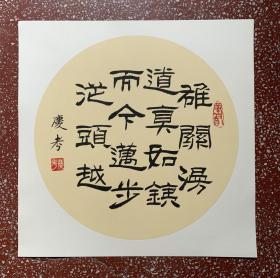 雄關漫
道真如鐵
而今邁步
從頭越
慶考